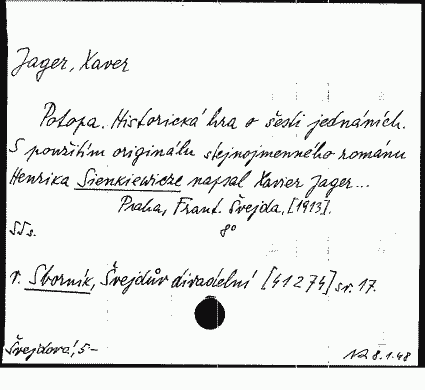 Jager, Xaver
Potopa. Historická hra o šesti jednáních.
S použitím originálu stejnojmenného románu
Henrika Sienkiewicze napsal Xavier Jager...
Praha, Frant. Švejda, [1913].
8°
v. Sborník, Švejdův divadelní [41274] sv. 17.
Švejdová, 5-
8.1.48